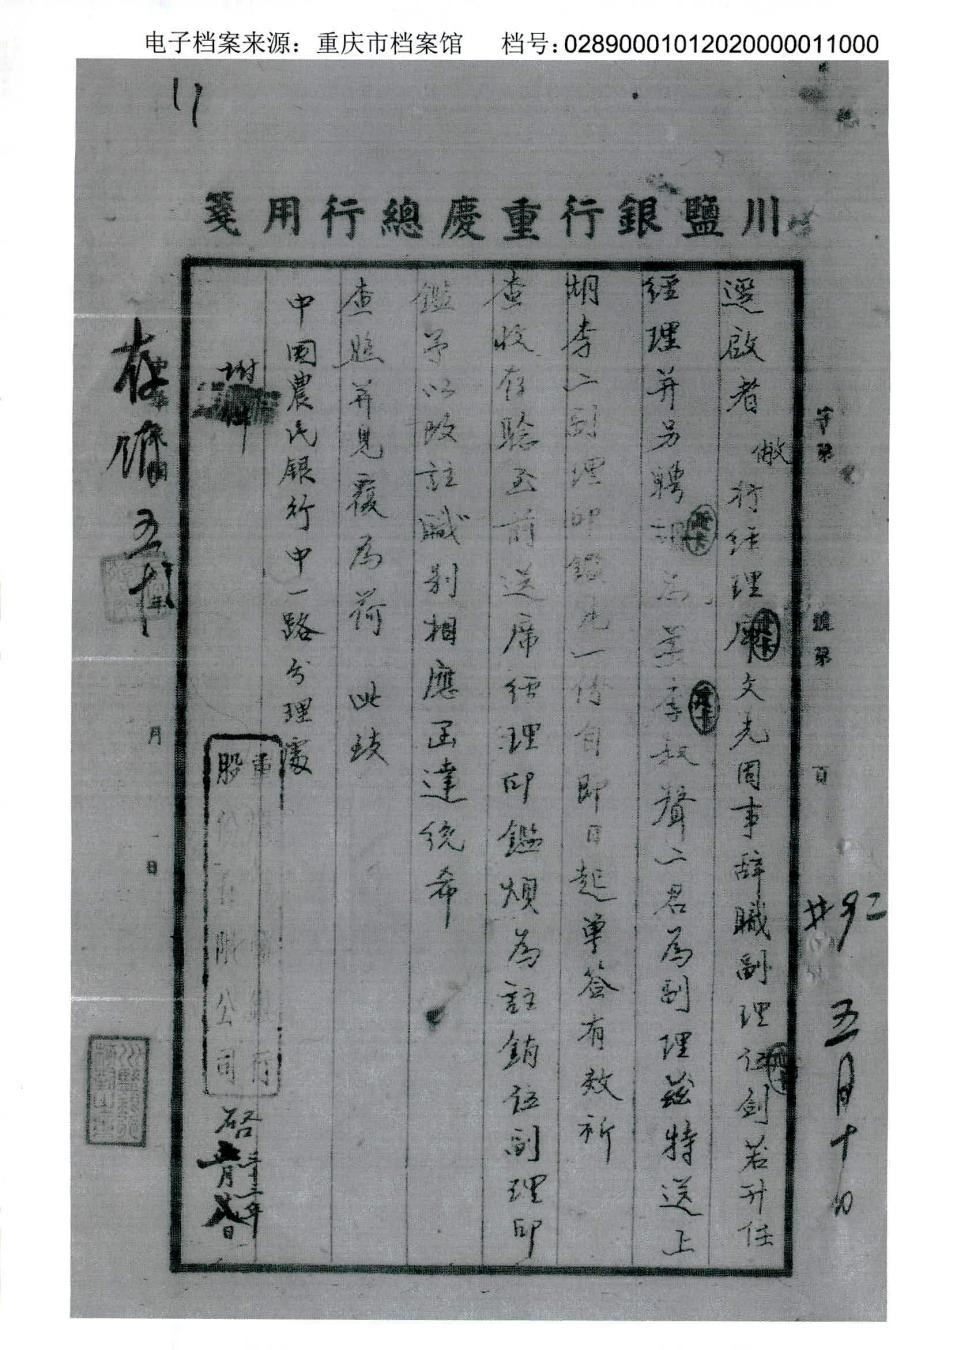 电子档案来源：重庆市档案馆 档号：02890001012020000011000
川鹽銀行重慶總行用箋
字第 號第 頁
#92 五月十日
逕啟者敝行經理席文光因事辞職副理伍劍若升任
經理并另聘胡 李叔聲二君為副理茲特送上
胡李二副理印鑑 一份自即日起單簽有效祈
查收存驗至前送席經理印鑑煩為註銷伍副理印
鑑予以改註職別相應函達統希
查照并見覆為荷 此致
中國農民銀行中一路分理處
附件
股份有限公司
啟 三十三年五月 日
月 日
存 五 十